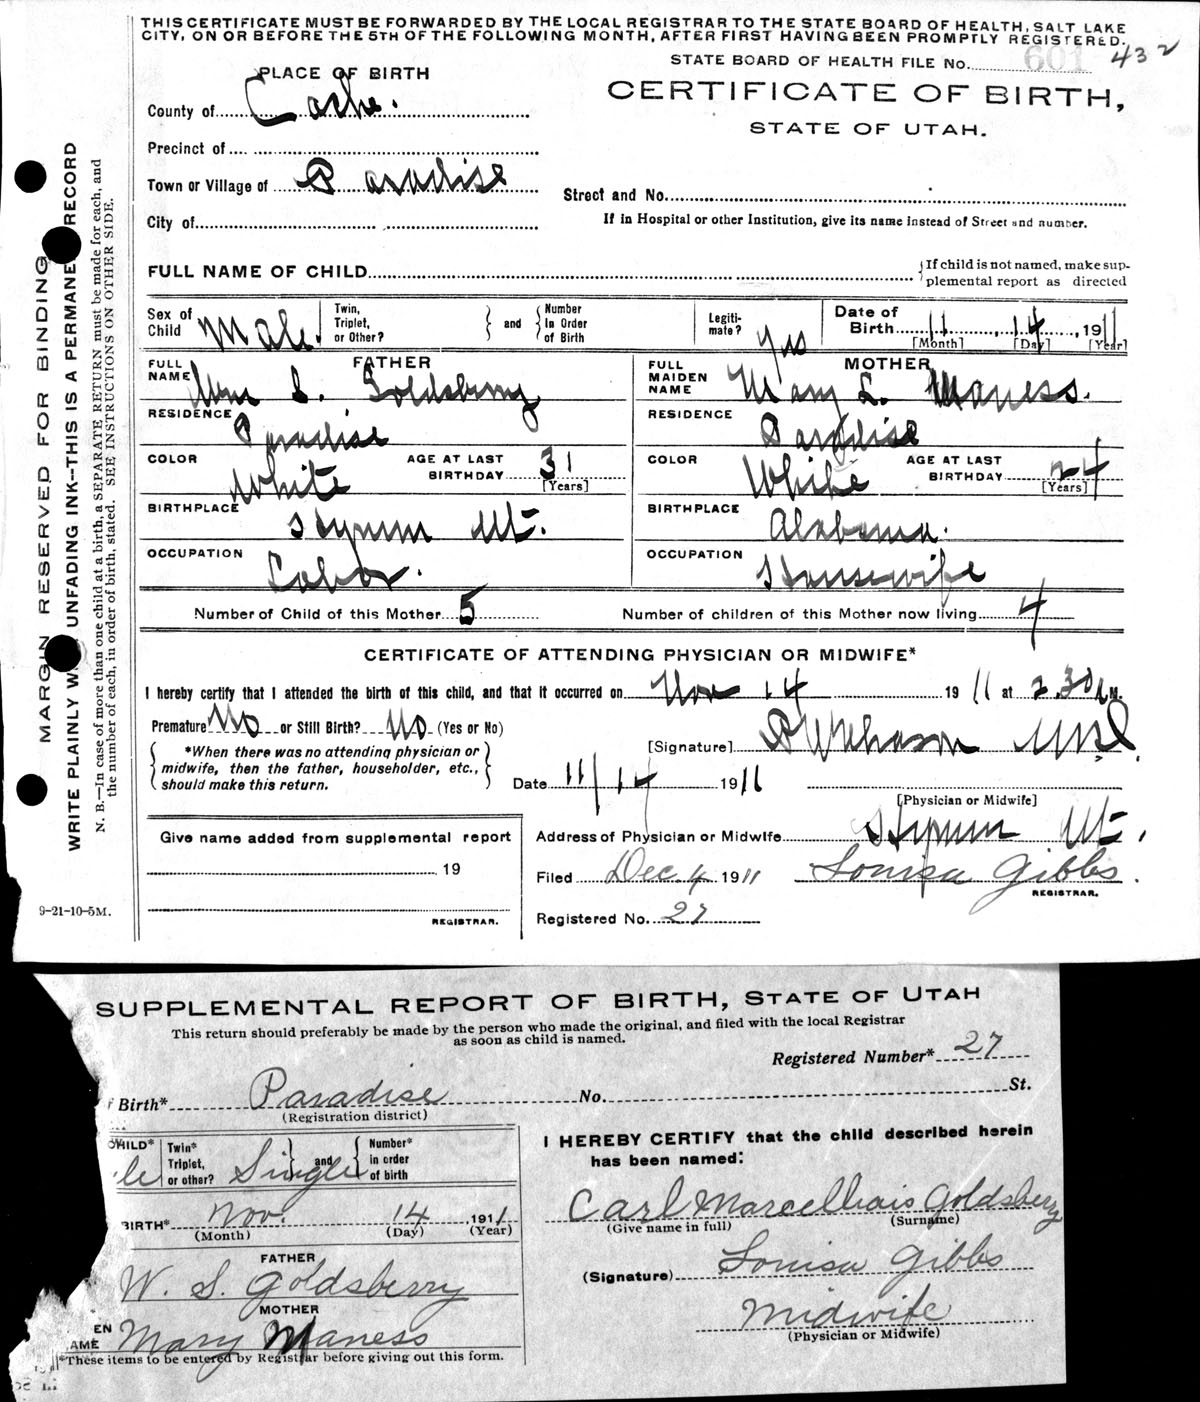 THIS CERTIFICATE MUST BE FORWARDED BY THE LOCAL REGISTRAR TO THE STATE BOARD OF HEALTH, SALT LAKE
CITY, ON OR BEFORE THE 5TH OF THE FOLLOWING MONTH, AFTER FIRST HAVING BEEN PROMPTLY REGISTERED.
STATE BOARD OF HEALTH FILE No. 601 432
PLACE OF BIRTH
CERTIFICATE OF BIRTH,
STATE OF UTAH.
County of Cache.
Precinct of
Town or Village of Paradise
Street and No.
City of
If in Hospital or other Institution, give its name instead of Street and number.
FULL NAME OF CHILD
{If child is not named, make sup-
plemental report as directed
Sex of Child Male.
Twin, Triplet, or Other?
and
Number In Order of Birth
Legiti-mate? Yes
Date of Birth 11, 14, 1911
[Month] [Day] [Year]
FATHER
FULL NAME Wm S. Goldsberry
RESIDENCE Paradise
COLOR White
AGE AT LAST BIRTHDAY 31
[Years]
BIRTHPLACE Hyrum Ut.
OCCUPATION Labor.
MOTHER
FULL MAIDEN NAME Mary L. Maness.
RESIDENCE Paradise
COLOR White
AGE AT LAST BIRTHDAY 24
[Years]
BIRTHPLACE Alabama.
OCCUPATION Housewife
Number of Child of this Mother 5
Number of children of this Mother now living 4
CERTIFICATE OF ATTENDING PHYSICIAN OR MIDWIFE*
I hereby certify that I attended the birth of this child, and that it occurred on Nov 14 1911 at 2.30 A.M.
Premature No or Still Birth? No (Yes or No)
*When there was no attending physician or
midwife, then the father, householder, etc.,
should make this return.
[Signature]
Date 11/14 1911
[Physician or Midwife]
Address of Physician or Midwife Hyrum Ut.
Give name added from supplemental report
19
REGISTRAR.
Filed Dec. 4 1911 Louisa Gibbs.
REGISTRAR.
Registered No. 27
MARGIN RESERVED FOR BINDING
WRITE PLAINLY W UNFADING INK--THIS IS A PERMANE RECORD
N. B.—In case of more than one child at a birth, a SEPARATE RETURN must be made for each, and
the number of each, in order of birth, stated. SEE INSTRUCTIONS ON OTHER SIDE.
9-21-10-5M.
SUPPLEMENTAL REPORT OF BIRTH, STATE OF UTAH
This return should preferably be made by the person who made the original, and filed with the local Registrar
as soon as child is named.
Registered Number* 27
f Birth* Paradise No. St.
(Registration district)
CHILD* le
Twin* Triplet, or other? Single
and
Number* in order of birth
BIRTH* Nov. 14, 1911
(Month) (Day) (Year)
FATHER
W. S. Goldsberry
MOTHER
EN
AME Mary Maness
*These items to be entered by Registrar before giving out this form.
I HEREBY CERTIFY that the child described herein
has been named:
Carl Goldsberry
(Give name in full) (Surname)
(Signature) Louisa Gibbs
Midwife
(Physician or Midwife)